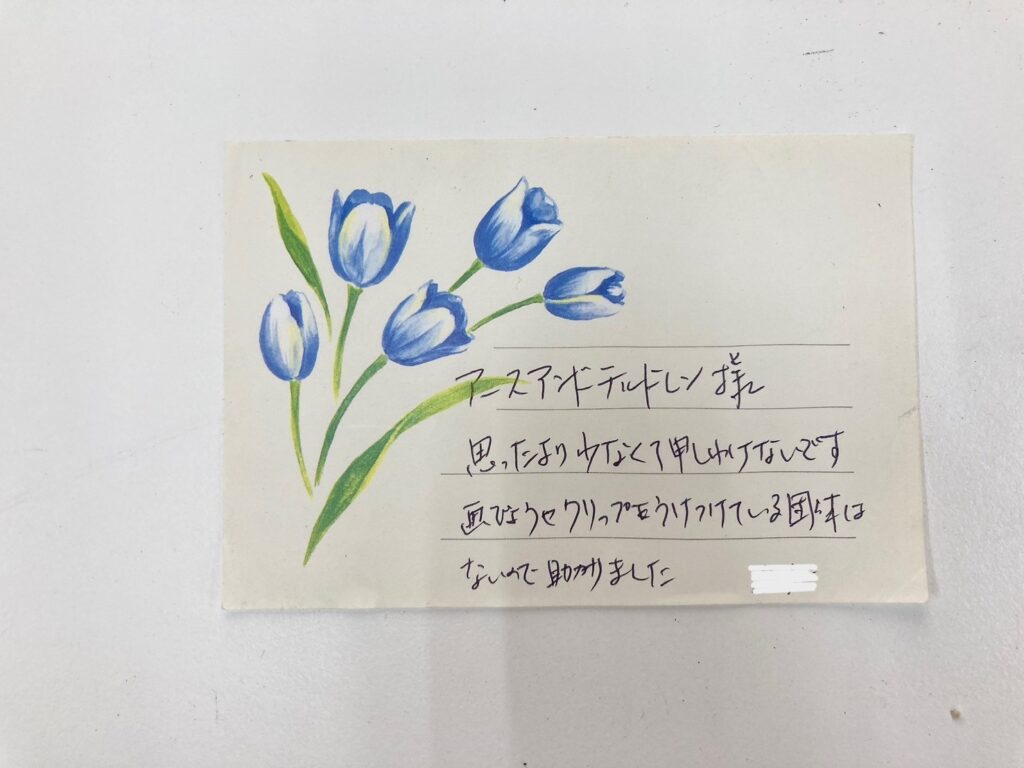 アースアンドチルドレン様
思ったより少なくて申しわけないです
画びょうやクリップをうけつけている団体は
ないので助かりました